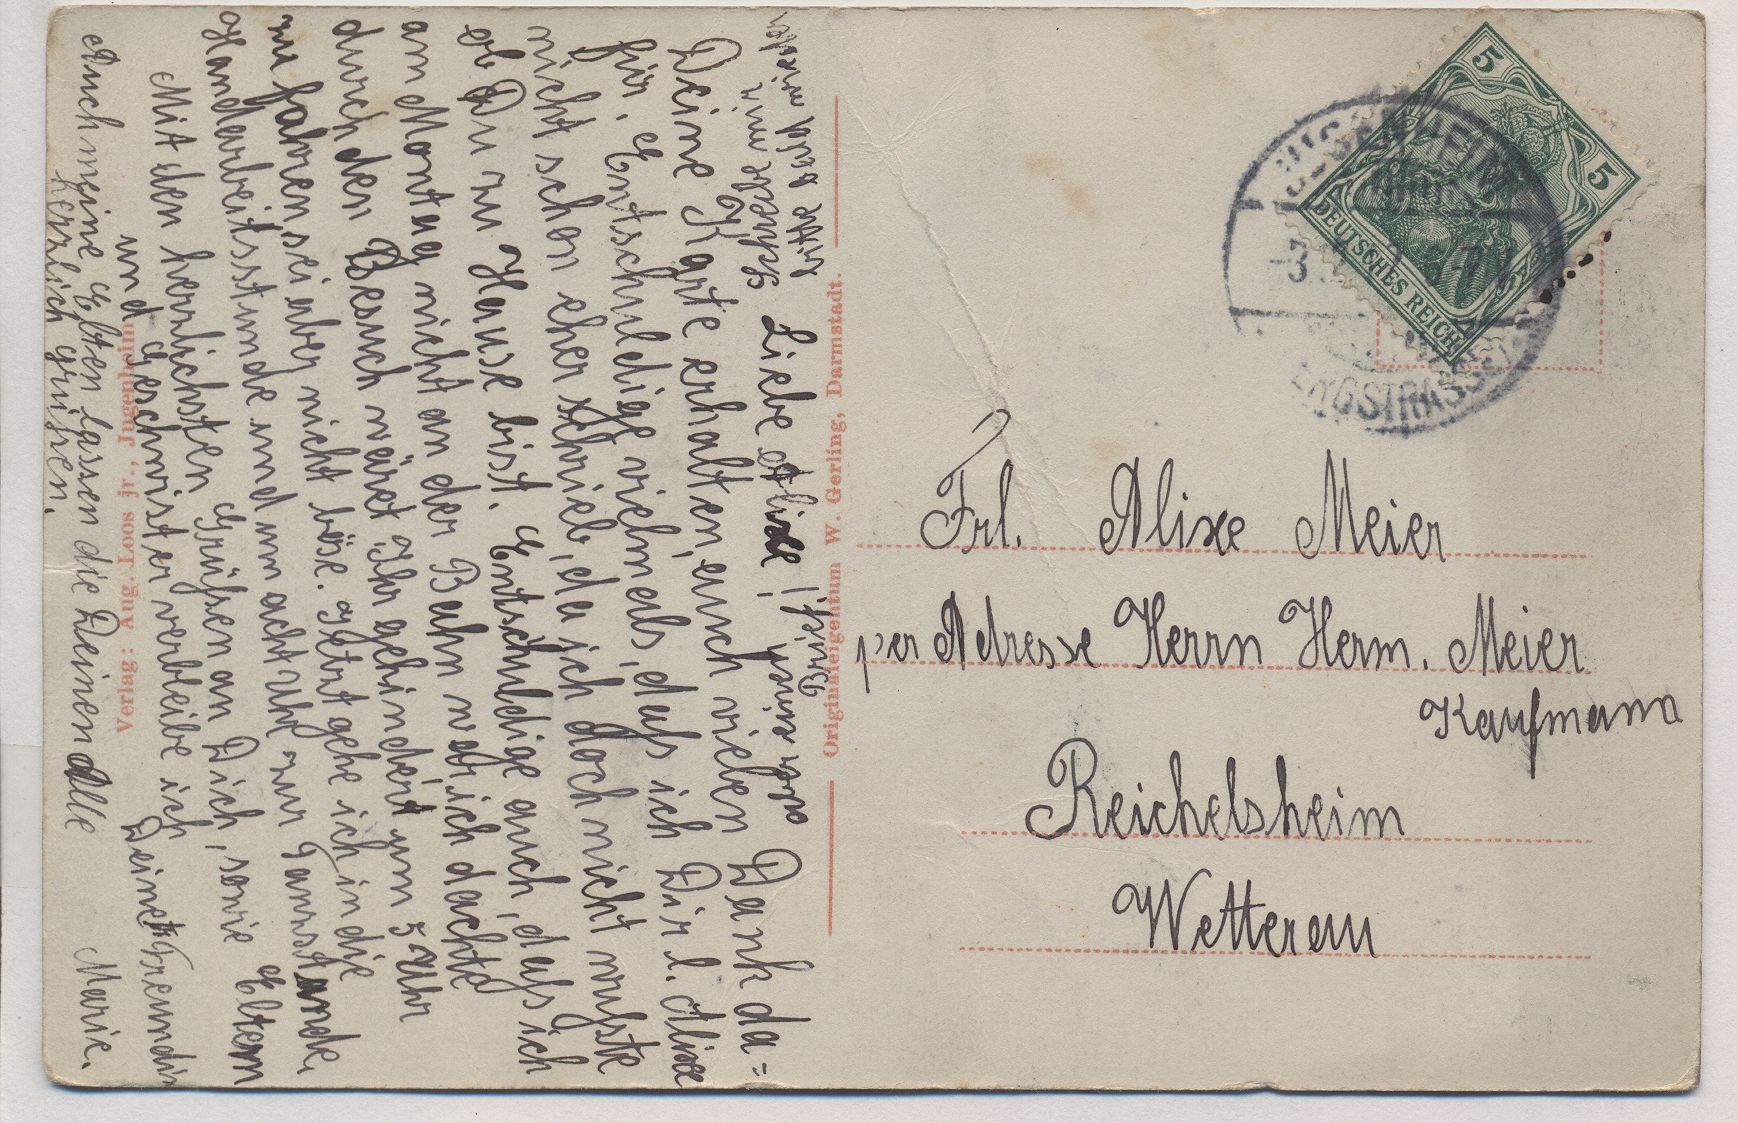 Liebe Alixe!
Deine Karte erhalten, auch vielen Dank da=
für. Entschuldige vielmals, dass ich Dir l. Alixe
nicht schon eher schrieb, da ich doch nicht wusste
ob Du zu Hause bist. Entschuldige auch, dass ich
am Montag nicht an der Bahn war ich dachte
durch den Besuch wäret Ihr gehindert um 5 Uhr
zu fahren, sei aber nicht böse. Jetzt gehe ich in die
Handarbeitsstunde und um acht Uhr zur Tanzstunde.
Mit den herzlichsten Grüssen an Dich, sowie Eltern
und Geschwister verbleibe ich
Deine Freundin
Marie.
Auch meine Eltern lassen die Deinen Alle
herzlich grüssen.
Schreibe mir
bitte bald wieder
einen
Brief!
Verlag: Aug. Loos jr., Jugenheim
Originaleigentum W. Gerling, Darmstadt.
5
5
DEUTSCHES REICH
Frl. Alixe Meier
per Adresse Herrn Herm. Meier
Kaufmann
Reichelsheim
Wetterau